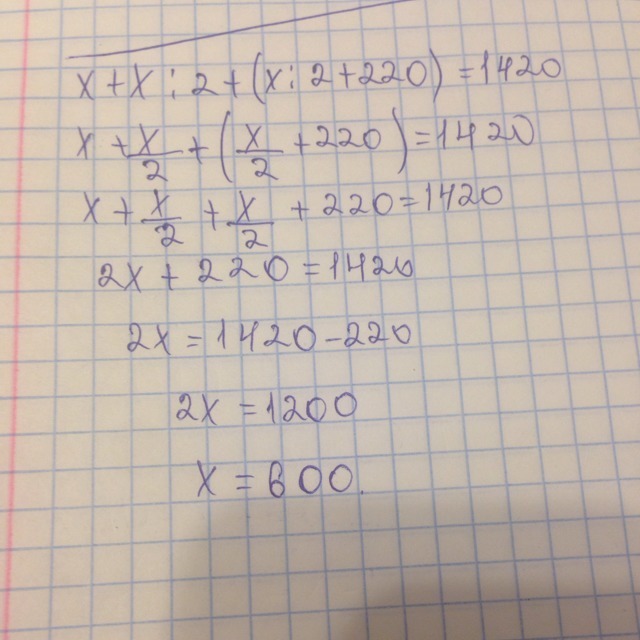 x + x : 2 + (x : 2 + 220) = 1420
x + x/2 + (x/2 + 220) = 1420
x + x/2 + x/2 + 220 = 1420
2x + 220 = 1420
2x = 1420 - 220
2x = 1200
x = 600.